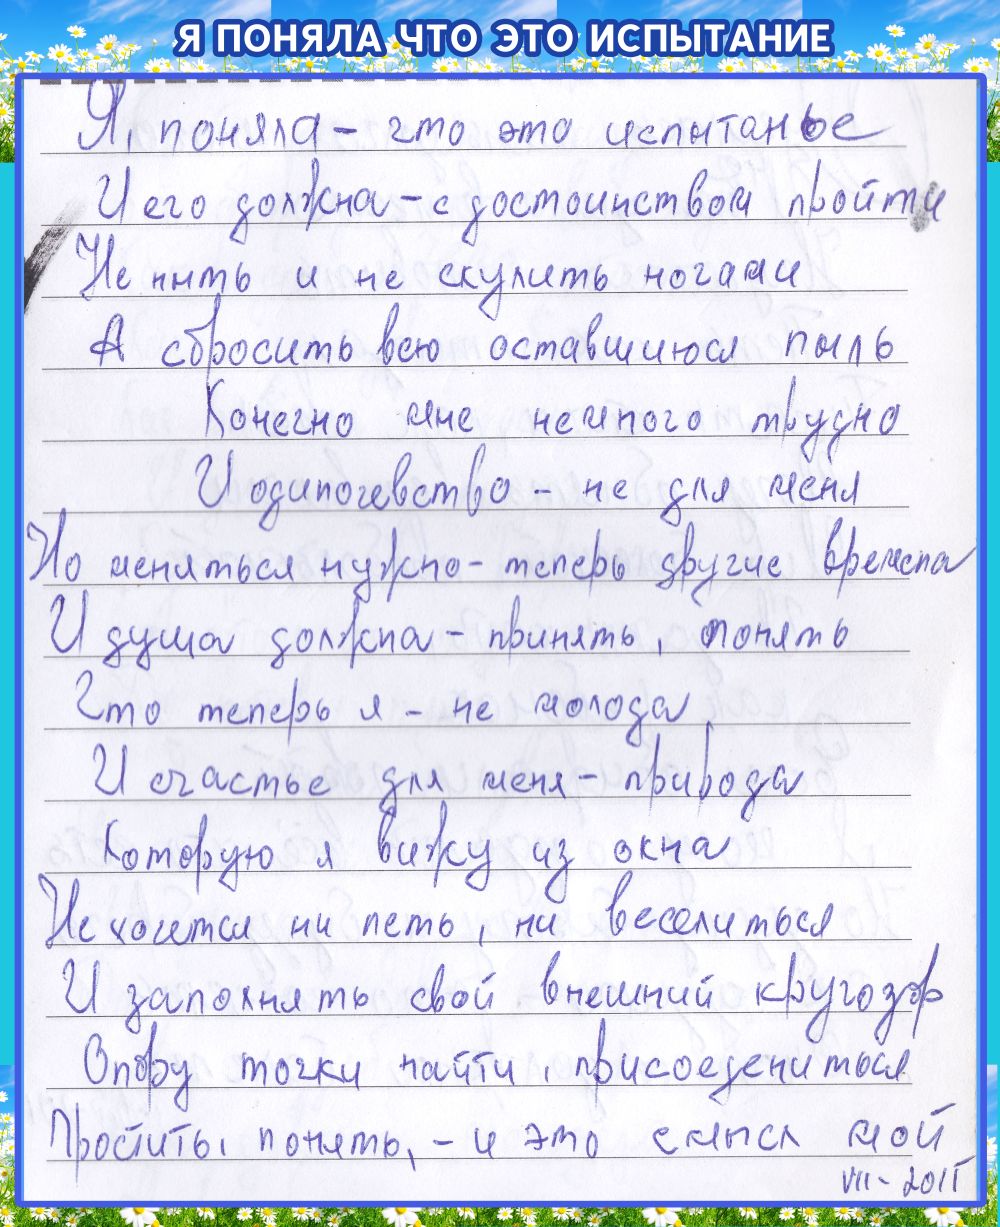 Я ПОНЯЛА ЧТО ЭТО ИСПЫТАНИЕ
Я поняла – что это испытанье
И его должна – с достоинством пройти
Не ныть и не скулить ногами
А сбросить всю оставшиюся пыль
Конечно мне немного трудно
И одиночевство – не для меня
Но меняться нужно – теперь другие времена
И душа должна – принять, понять
Что теперь я – не молода,
И счастье для меня – природа
Которую я вижу из окна
Не хочется ни петь, ни веселиться
И заполнять свой внешний кругозор
Опору точки найти, присоедениться
Простить, понять, – и это смысл мой
VII - 2011